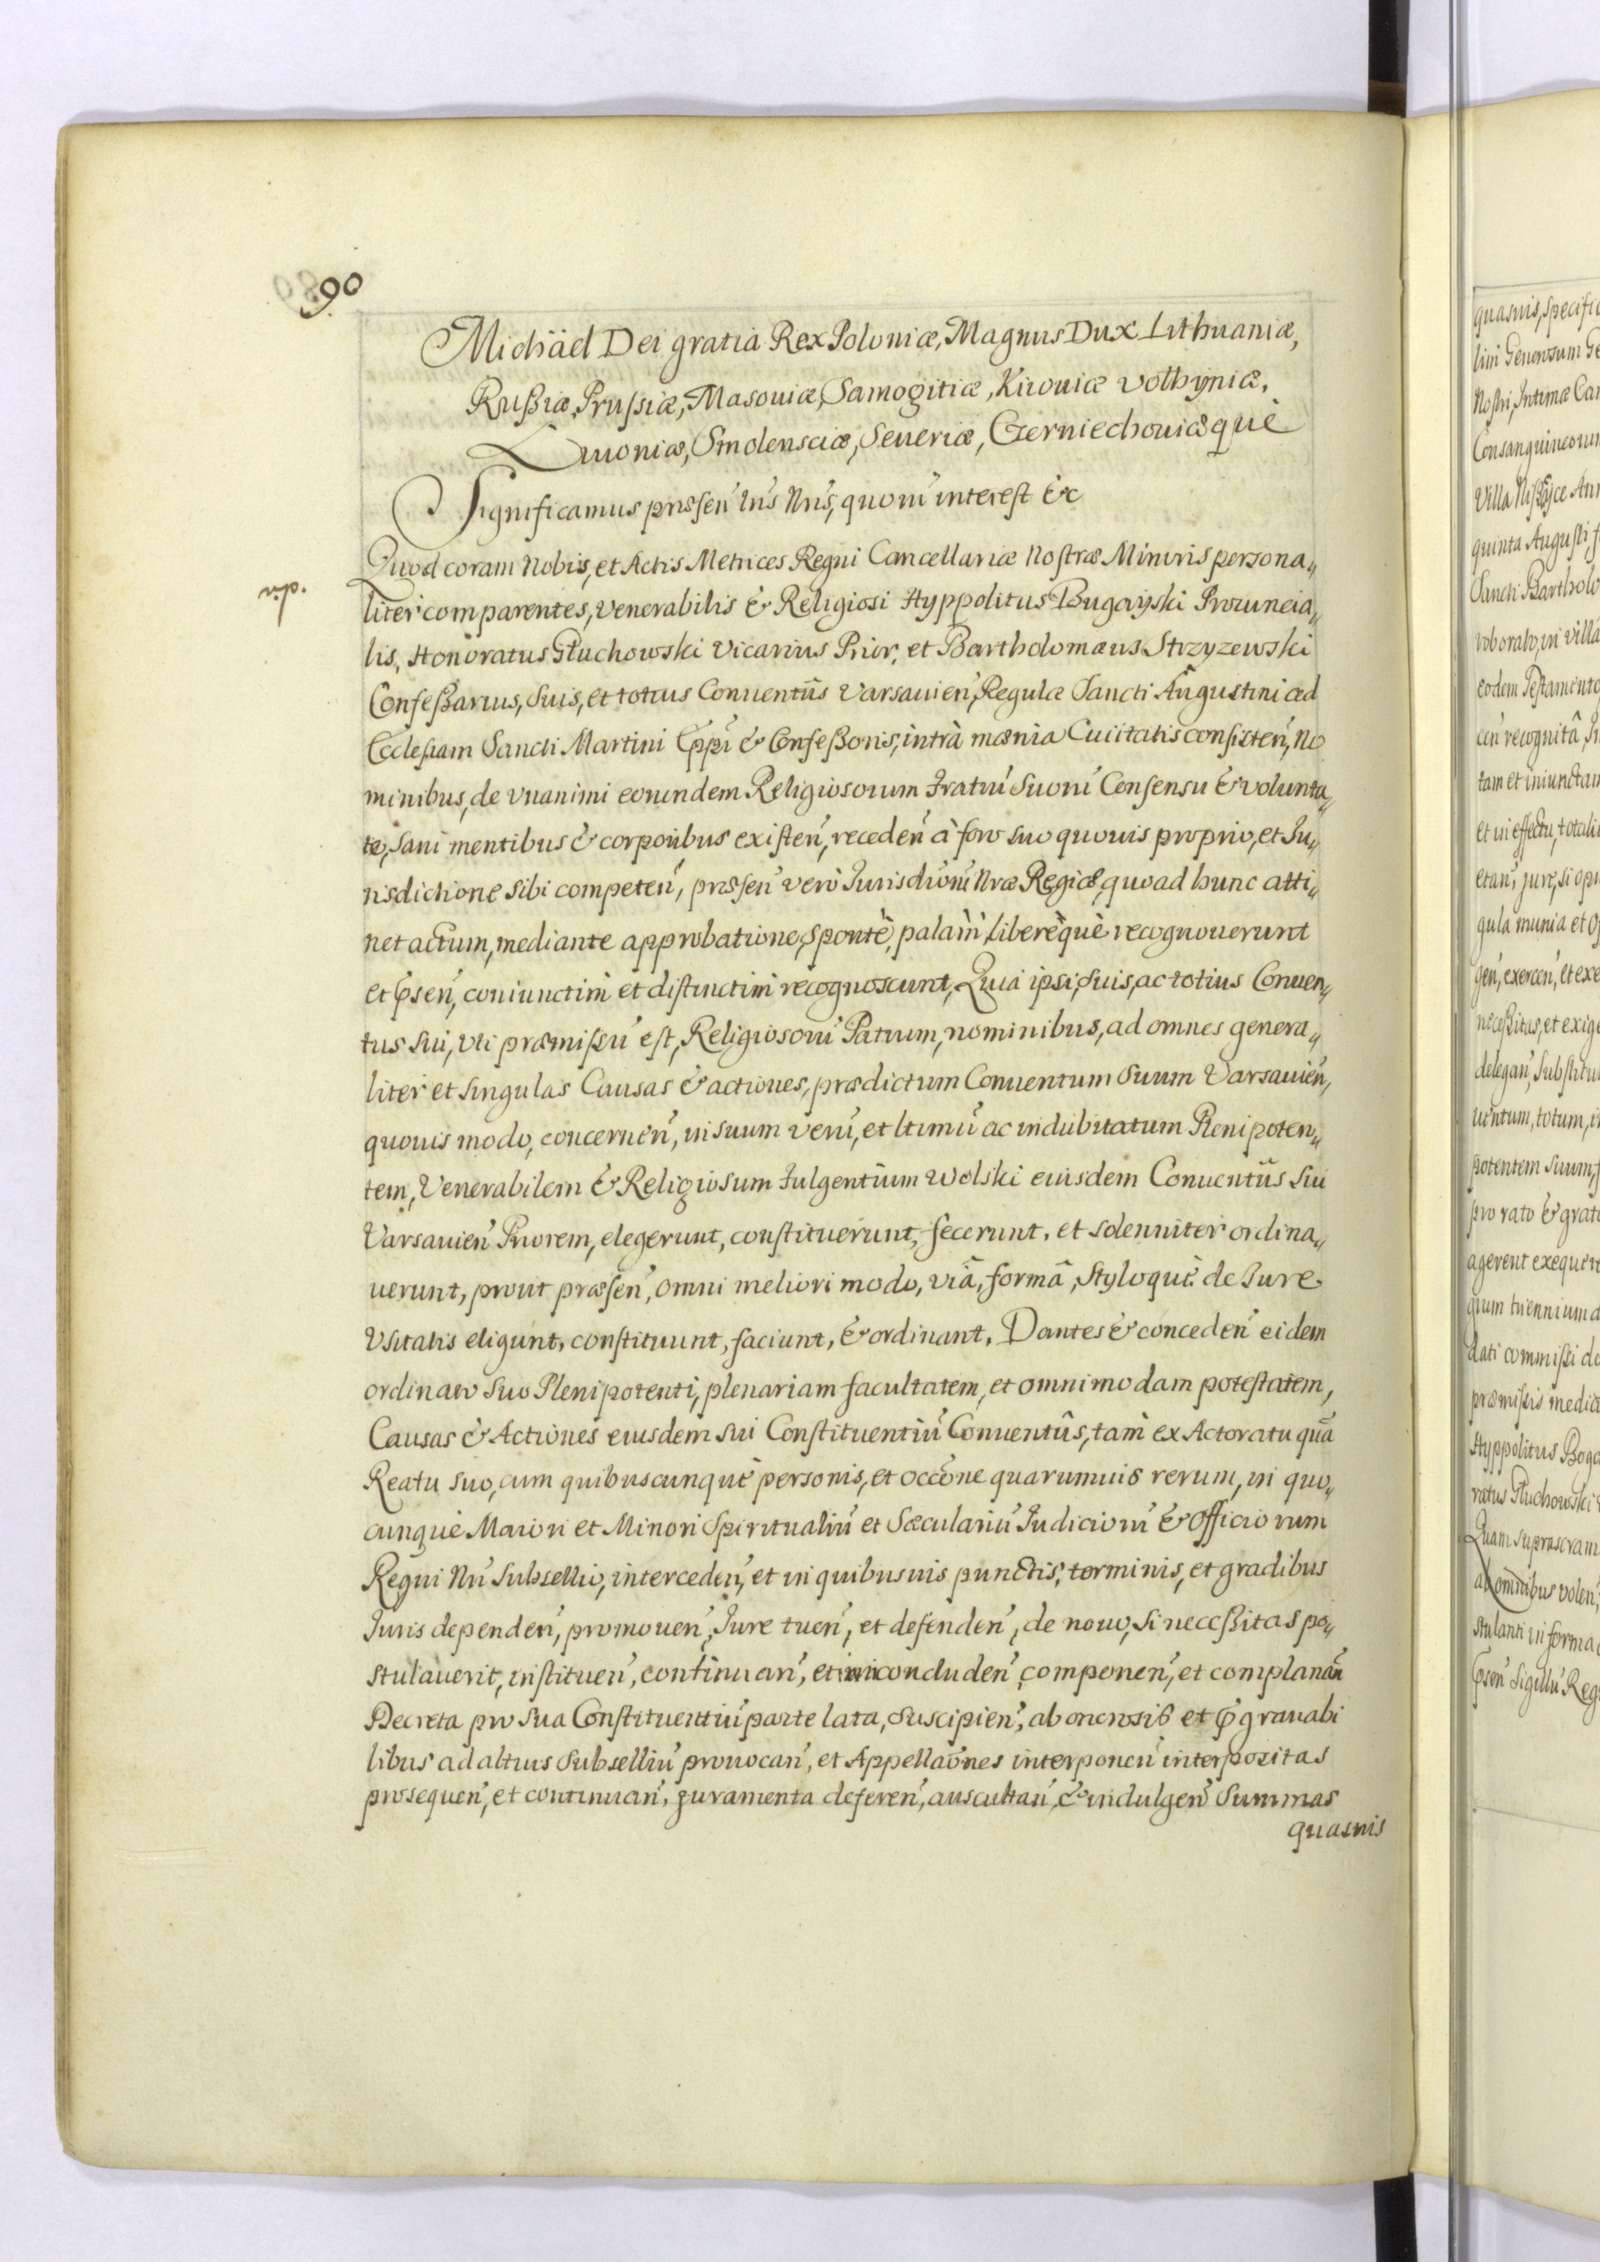 90
Michäel Dei gratia Rex Poloniæ, Magnus Dux Lithuaniæ,
Rußiæ, Prußiæ, Masouiæ, Samogitiæ, Kiiouiæ Volhyniæ,
Liuoniæ, Smolensciæ, Seueriæ, Czerniechouiæquè
Significamus præsen̄ Lr̄is Nr̄is, quorū interest &c
Quod coram Nobis, et Actis Metrices Regni Cancellariæ Nostræ Minoris persona„
liter comparentes, Venerabilis & Religiosi Hyppolitus Bugayski Prouincia„
lis, Honoratus Głuchowski Vicarius Prior, et Bartholomæus Strzyzewski
Confeßarius, Suis, et totius Conuentûs Varsauien̄, Regulæ Sancti Augustini ad
Ecclesiam Sancti Martini Ep̄pi & Confeßoris, intrà mænia Cuiitatis consisten̄, No
minibus, de vnanimi eorundem Religiosorum Fratrū Suorū Consensu & Volunta„
te, Sani mentibus & corporibus existen̄, receden̄ à foro suo quouis proprio, et Ju„
risdictione sibi competen̄, præsen̄ verò Jurisdiōni Nræ Regiæ, quoad hunc atti„
net actum, mediante approbatione, Spontè, palàm, liberèquè recognouerunt
et p̄sen̄, coniunctim et distinctim recognoscunt, Quia ipsi, Suis, ac totius Conuen„
tus Sui, vti præmissū est, Religiosorū Patrum, nominibus, ad omnes genera„
liter et singulas Causas & actiones, prædictum Conuentum Suum Varsauien̄,
quouis modo, concernen̄, in suum verū, et ltimū ac indubitatum Plenipoten„
tem, Venerabilem & Religiosum Fulgentium Wolski eiusdem Conuentûs Sui
Varsauien̄ Priorem, elegerunt, constituerunt, fecerunt, et solenniter ordina„
uerunt, prout præsen̄, omni meliori modo, viâ, formâ, Styloquè de Jure
Vsitatis eligunt, constituunt, faciunt, & ordinant. Dantes & conceden̄ eidem
ordinato Suo Plenipotenti, plenariam facultatem, et omnimodam potestatem,
Causas & Actiones eiusdem sui Constituentiū Conuentûs, tam ex Actoratu quā
Reatu suo, cum quibuscunquè personis, et occōne quarumuis rerum, in quo„
cunquè Maiori et Minori Spiritualiū et Sæculariū Judiciorū & Officiorum
Regni Nri Subsellio, interceden̄, et in quibusuis punctis, terminis, et gradibus
Juris dependen̄, promouen̄, Jure tuen̄, et defenden̄, de nouo, si neceßitas po„
stulauerit, instituen̄, continuan̄, et concluden̄, componen̄, et complanan̄
Decreta pro sua Constituentiū parte lata, Suscipien̄, ab onerosis et p̄grauabi
libus ad altius Subselliū prouocan̄, et Appellaōnes interponen̄ interpositas
prosequen̄, et continuan̄, juramenta deferen̄, auscultan̄, & indulgen̄ Summas
quasuis
quasuis, specific
Nostri, Intimæ Can
Consanguineorum
quinta Augusti, f
Sancti Bartholo
roborato, in villa
eodem Testamento
cen̄ recognitâ, In
tam et iniunctam
et in effectu, totali
etan̄, jure, si opu
gula munia et O
gen̄, exercen̄, et exe
neceßitas, et exige
delegan̄, Substitu
uentum, totum, i
potentem suum, f
pro rato & grato
agerent exequere
quum triennium a
dati commissi de
præmissis medi
Hyppolitus Buga
ratus Głuchowski
ab omnibus volen̄,
stulanti in forma
p̄sen̄ Sigillū Reg